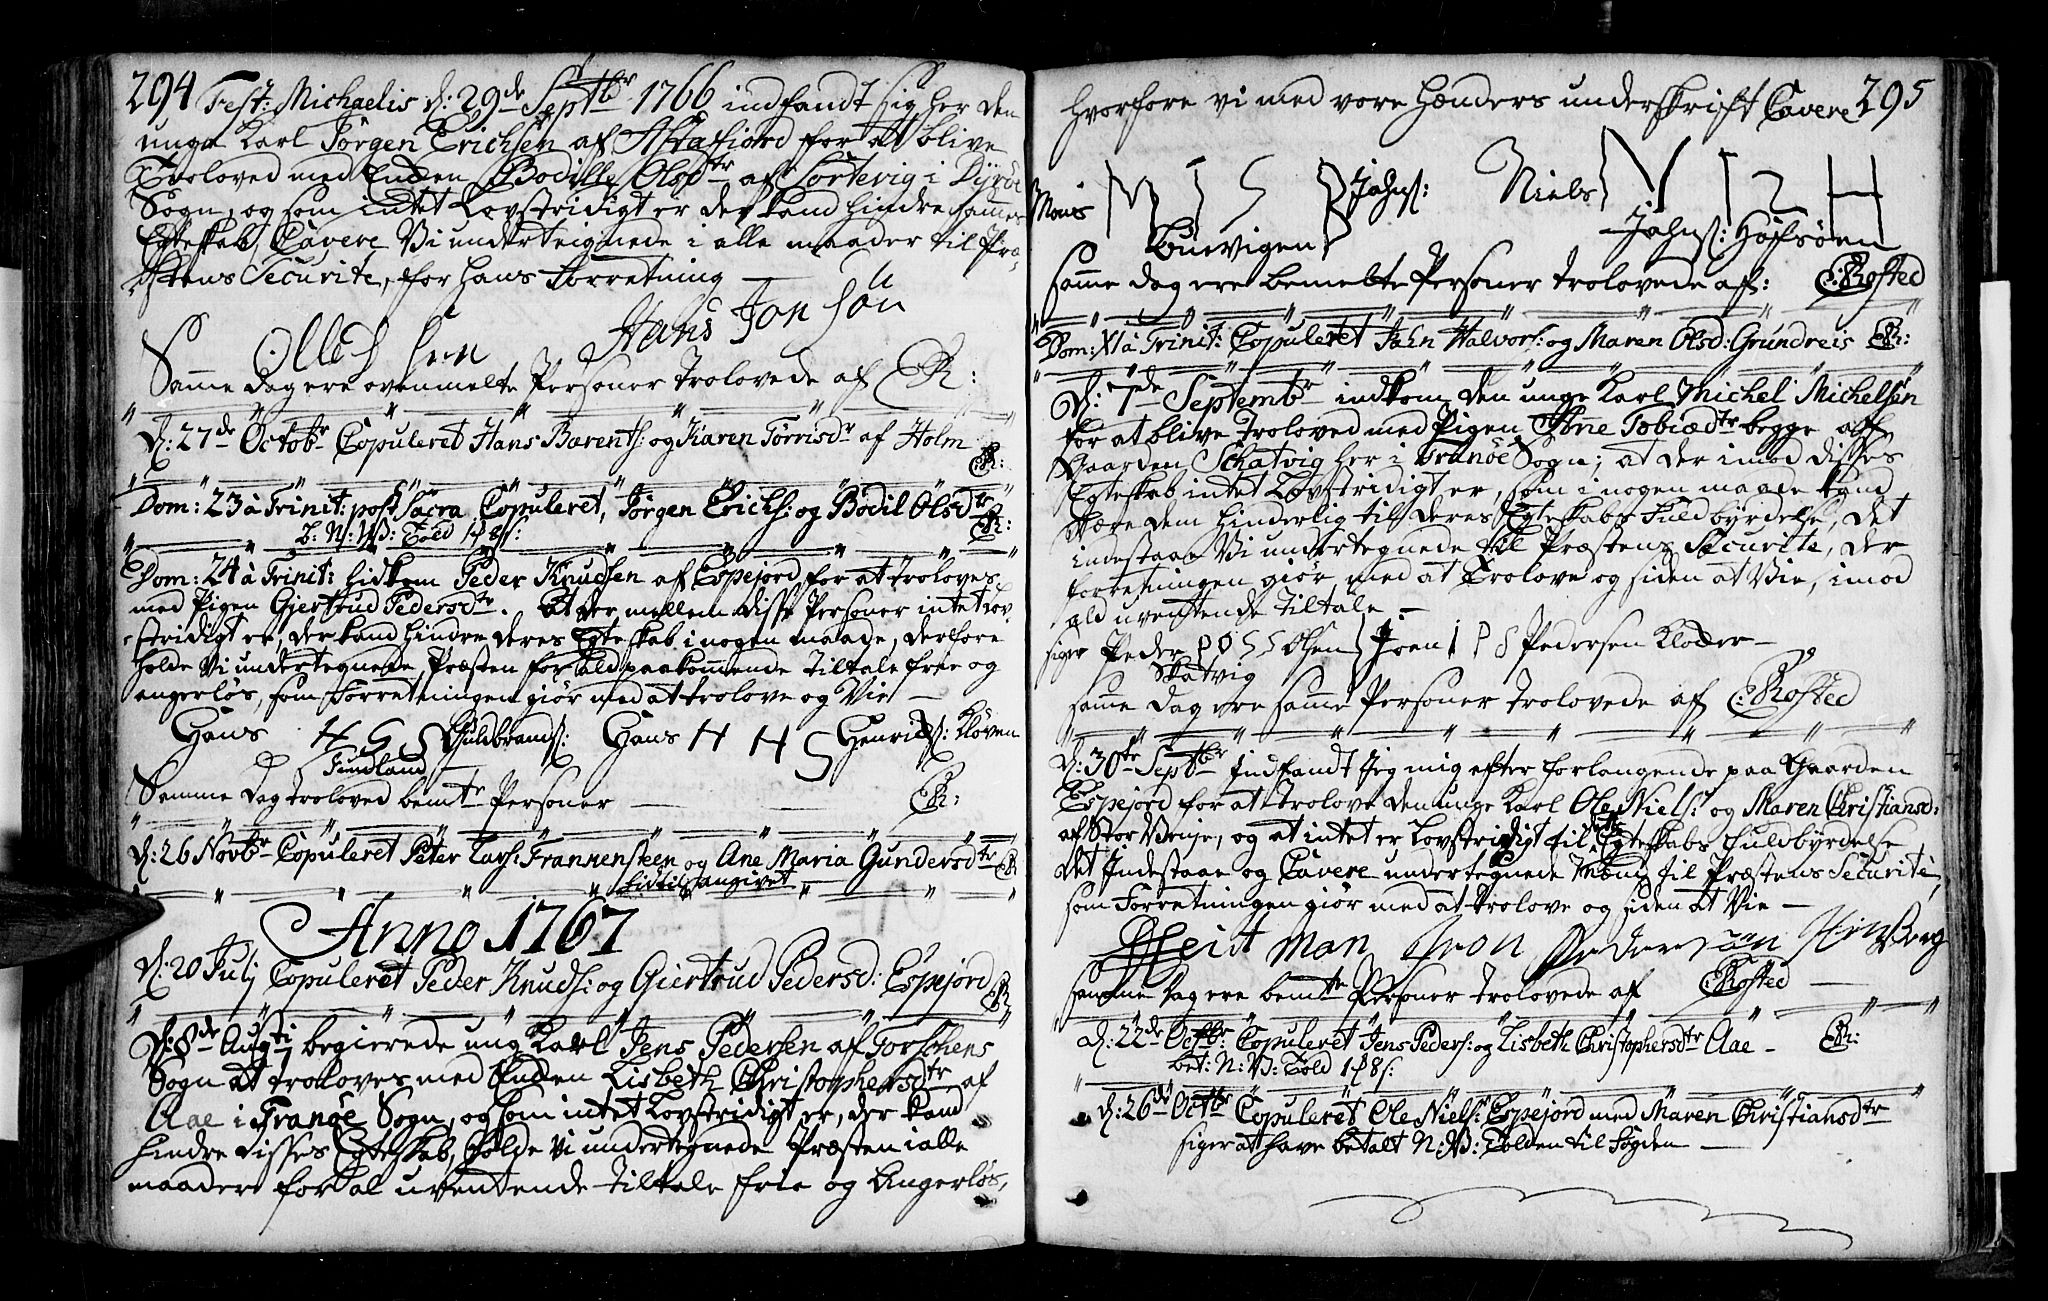 294 Fest: Michaelis d: 29de Septbr 1766 indfandt sig her den
unge Karl Jørgen Erichsen af Astafiord for at blive
Troloved med Enken Bodille Olsdtr af Sortevig i Dyrøe
Sogn, og som intet Lovstridigt er der kand hindre sammes
Egteskab, Cavere Vi underteignede i alle maader til Præ-
stens Securite, for hans Forretning —
Hans Jonsøn
Samme dag ere ovenmelte Personer Trolovede af CR:
d: 27de Octobr Copuleret Hans Barents: og Karen Torrisdr af Holm
CR:
Dom: 23 à Trinit: post sacra Copuleret, Jørgen Erichs: og Bodil Olsdtr
b: N: W: Told 18s: CR:
Dom: 24 à Trinit: hidkom Peder Knudsen af Espejord for at troloves
med Pigen Gjertrud Pedersdtr. At der mellem disse Personer intet Lov-
stridigt er, der kand hindre deres Egteskab i nogen maade, derfore
holde Vi undertegnede Præsten for ald paakommende tiltale frie og
angerløs, som Forretningen giør med at trolove og Vie —
Hans H G S Guldbrands: Hans H H S Henrichs: Kløven
Fundland
Samme Dag troloved bemte Personer — CR:
d: 26 Novbr Copuleret Peter Lars: Frankensteen og Ane Maria Gundersdtr CR
tidtil angivet
Anno 1767
d: 20 Julj Copuleret Peder Knuds: og Giertrud Pedersd: Espejord CR
d: 8de Augti begierede ung Karl Jens Pedersen af Torschens
Sogn at troloves med Enken Lisbeth Christophersdtr af
Aae i Tranøe Sogn, og som intet Lovstridigt er, der kand
hindre disses Egteskab, holde Vi undertegnede Præsten i alle
maader for al uventende tiltale frie og Angerløs,
hvorfore vi med vore Hænders underskrift Cavere 295
Mons M I S B Jahns: Niels N I S H
Buevigen Jahns: Hofsøen
Samme dag ere bemelte Personer trolovede af: C: Rosted
Dom: XI à Trinit: Copuleret Jahn Halvors: og Maren Olsd: Grundreis CR:
d: 7de Septembr indkom den unge Karl Michel Michelsen
for at blive Troloved med Pigen Ane Tobiædtr begge af
Gaarden Schatvig her i Tranøe Sogn; at der imod disses
Egteskab intet Lovstridigt er, som i nogen maade kand
være dem hinderlig til deres Egteskabs Fuldbyrdelse, det
indestaar Vi undertegnede til Præstens Securite, der
forretningen giør med at Trolove og siden at Vie, imod
ald uventende tiltale —
siger Peder P O S S Olsen Joen I P S Pedersen Klodder —
Skatvig
samme dag ere samme Personer trolovede af C: Rosted
d: 30te Septbr Indfandt Jeg mig efter forlangende paa Gaarden
Espejord for at trolove den unge Karl Ole Niels: og Maren Christiansd:
af Stor Vrije, og at intet er Lovstridigt til dette Egteskabs Fuldbyrdelse
det Indestaae og Cavere undertegnede Mænd til Præstens Securité,
som Forretningen giør med at trolove og siden at Vie —
Heitman Jron Pedersøn
samme Dag ere bemte Personer trolovede af C Rosted —
d: 22de Octbr: Copuleret Jens Peders: og Lisbeth Christophersdtr Aae — CR:
bet: N: W: Told 18s:
d: 26de Octbr Copuleret Ole Niels: Espejord med Maren Christiansdtr
siger at have betalt N: W: Tolden til Fogden —